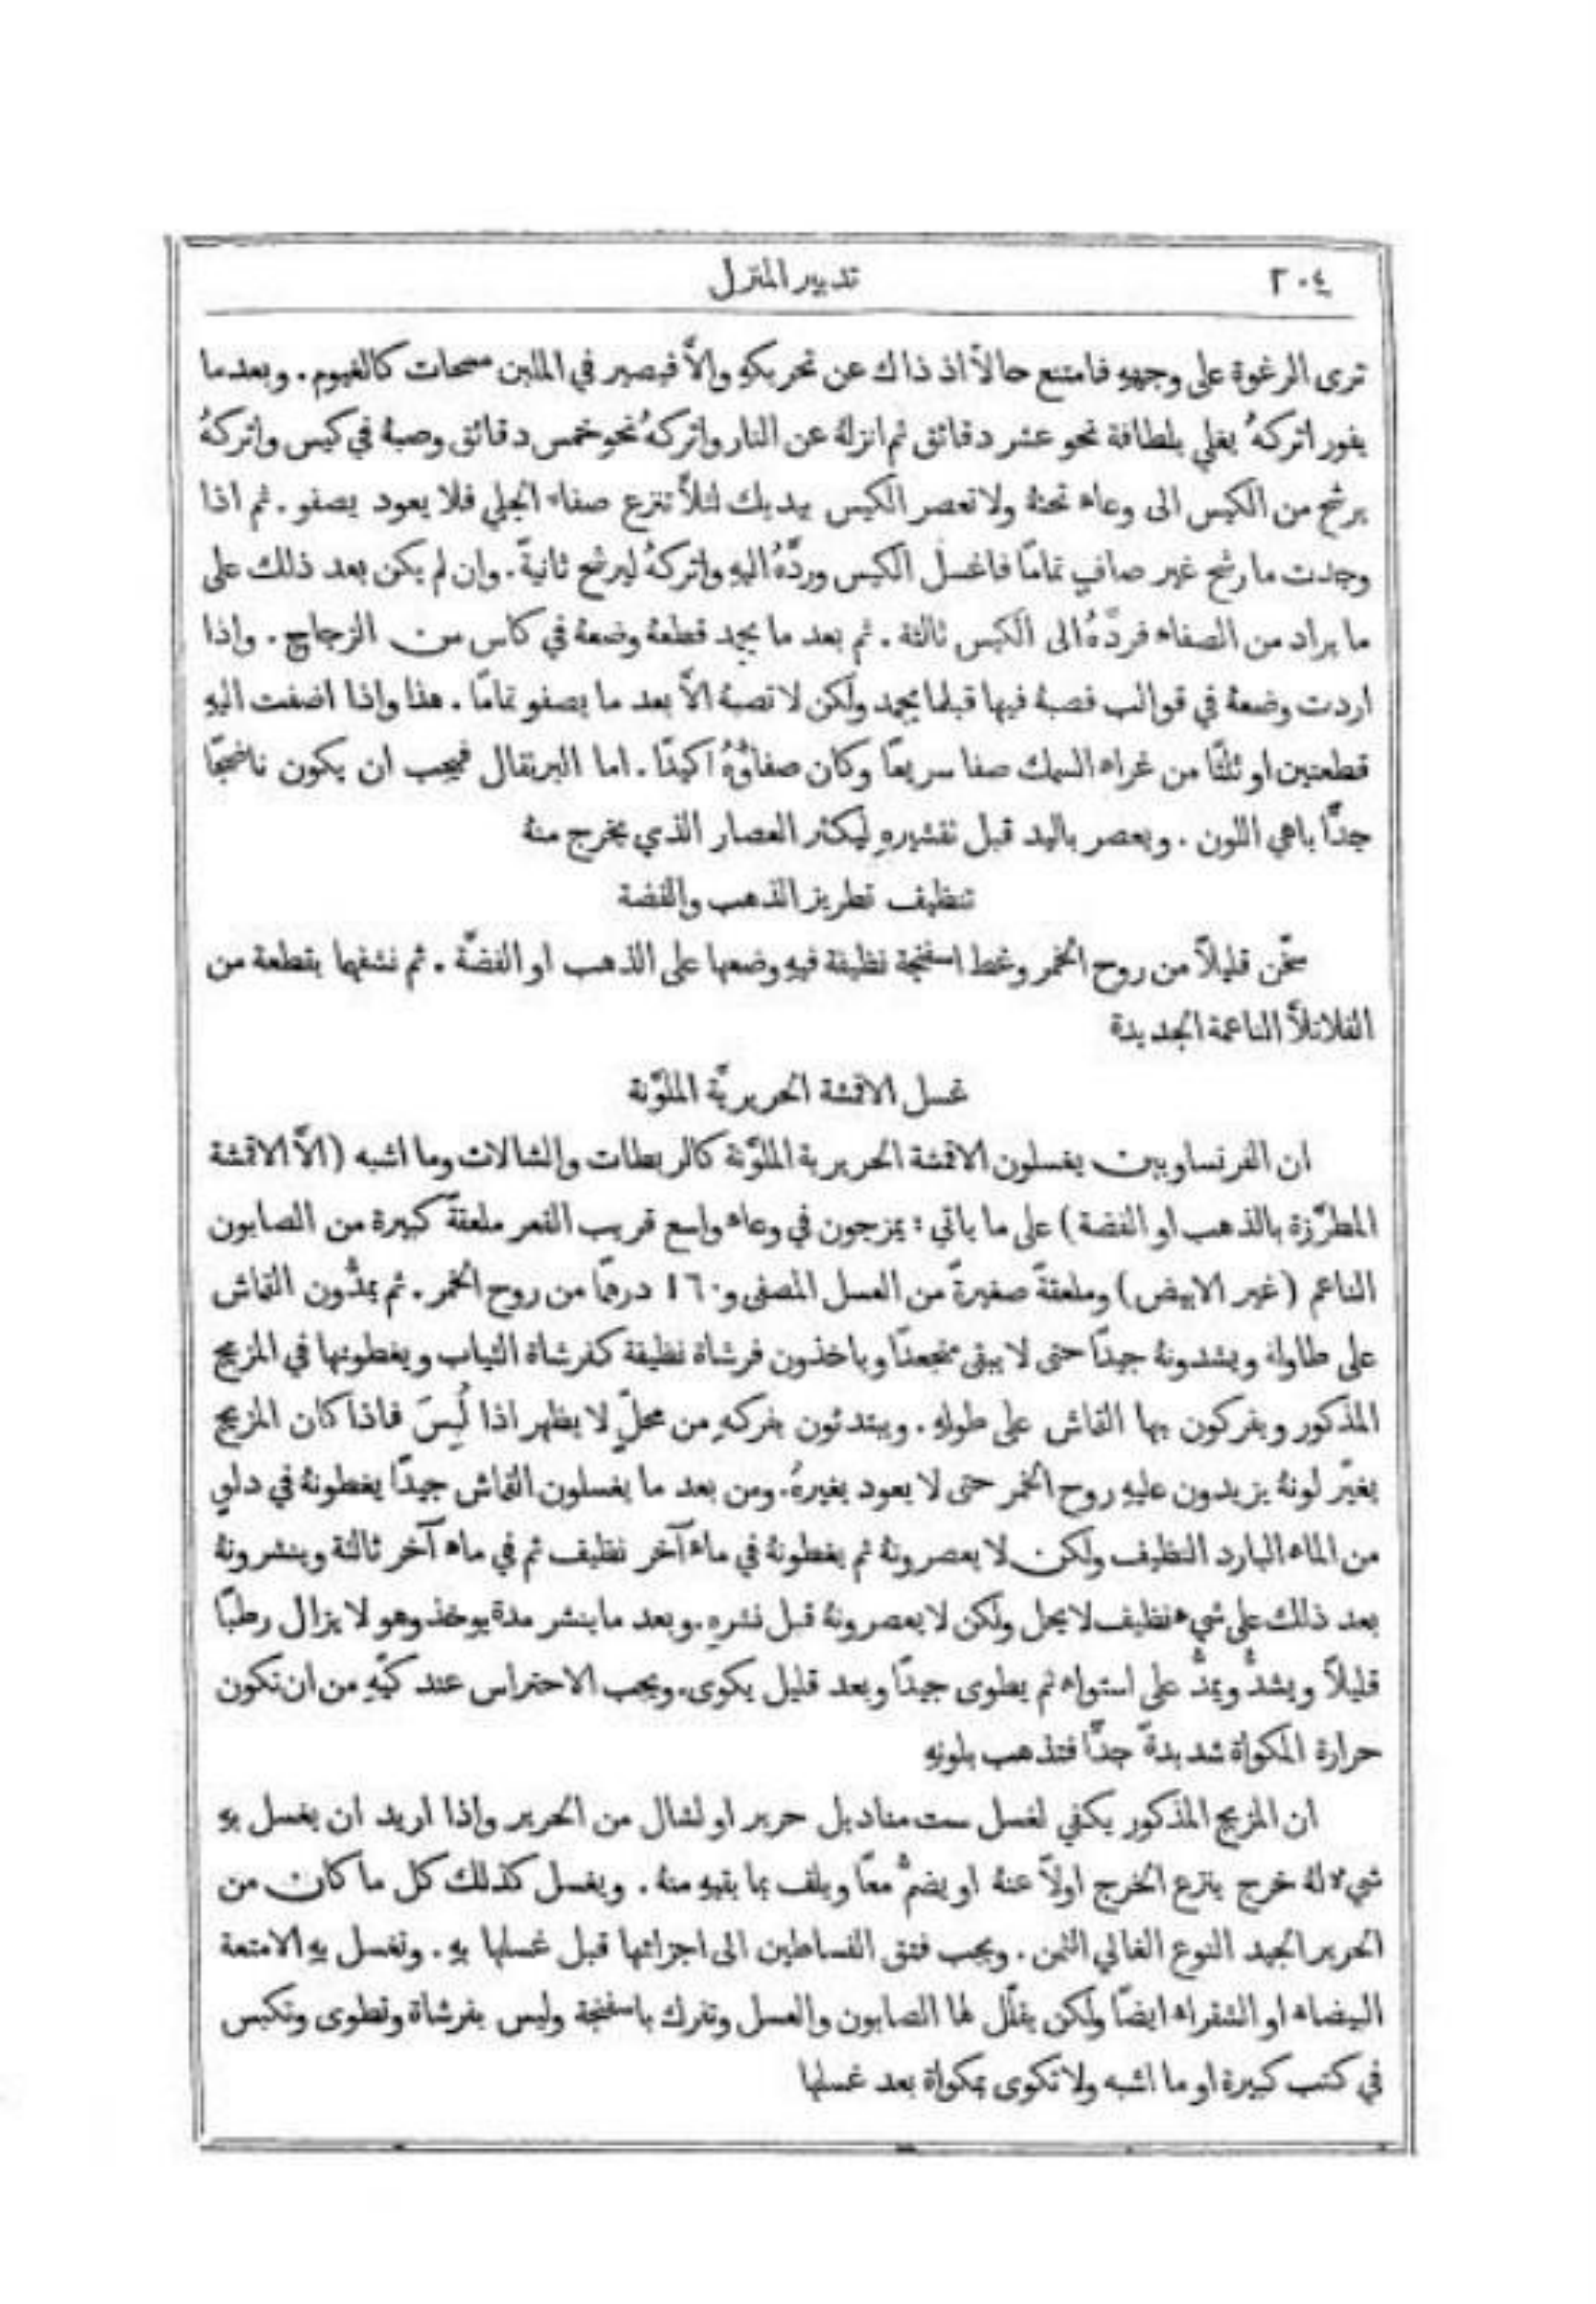 ٢٠٤
تدبير المنزل
ترى الرغوة على وجههِ فامتنع حالاً اذ ذاك عن تحريكهِ والاَّ فيصير في الملبن سحابات كالغيوم. وبعدما
يفور اتركهُ يغلي بلطافة نحو عشر دقائق ثم انزلهُ عن النار واتركهُ نحو خمس دقائق وصبهُ في كيس واتركهُ
يرشح من الكيس الى وعاء تحتهُ ولا تعصر الكيس بيديك لئلاَّ تنزع صفاء الجلي فلا يعود يصفو. ثم اذا
وجدت ما رشح غير صافٍ تمامًا فاغسل الكيس وردَّهُ اليهِ واتركهُ ليرشح ثانيةً. وان لم يكن بعد ذلك على
ما يراد من الصفاء فردَّهُ الى الكيس ثالثة. ثم بعد ما يجمد قطعهُ وضعهُ في كاس من الزجاج. واذا
اردت وضعهُ في قوالب فصبهُ فيها قبلما يجمد ولكن لا تصبهُ الاَّ بعد ما يصفو تمامًا. هذا واذا اضفت اليهِ
قطعتين او ثلثًا من غراء السمك صفا سريعًا وكان صفاؤُهُ اكيدًا. اما البرتقال فيجب ان يكون ناضجًا
جدًّا باهي اللون. ويعصر باليد قبل تقشيرهِ ليكثر العصار الذي يخرج منهُ
تنظيف تطريز الذهب والفضة
سخّن قليلاً من روح الخمر وغط اسفنجة نظيفة فيهِ وضعها على الذهب او الفضَّة. ثم نشفهما بقطعة من
الفلانلاَّ الناعمة الجديدة
غسل الاقمشة الحريريَّة الملوَّنة
ان الفرنساويين يغسلون الاقمشة الحريرية الملوَّنة كالربطات والشالات وما اشبه (الاَّ الاقمشة
المطرَّزة بالذهب او الفضة) على ما ياتي: يمزجون في وعاء واسع قريب القعر ملعقةً كبيرة من الصابون
الناعم (غير الابيض) وملعقةً صغيرةً من العسل المصفى و١٦٠ درهمًا من روح الخمر. ثم يمدُّون القماش
على طاولة ويشدونهُ جيدًا حتى لا يبقى متجعدًا وياخذون فرشاة نظيفة كفرشاة الثياب ويغطونها في المزيج
المذكور ويفركون بها القماش على طولهِ. ويبتدئون بفركهِ من محلٍّ لا يظهر اذا لُبِسَ فاذا كان المزيج
يغيّر لونهُ يزيدون عليهِ روح الخمر حتى لا يعود يغيرهُ. ومن بعد ما يغسلون القماش جيدًا يغطونهُ في دلوٍ
من الماء البارد النظيف ولكن لا يعصرونهُ ثم يغطونهُ في ماء آخر نظيف ثم في ماء آخر ثالثة وينشرونهُ
بعد ذلك على شيء نظيف لا يحل ولكن لا يعصرونهُ قبل نشرهِ. وبعد ما ينشر مدة يوخذ وهو لا يزال رطبًا
قليلاً ويشدُّ ويمدُّ على استواء ثم يطوى جيدًا وبعد قليل يكوى. ويجب الاحتراس عند كيّهِ من ان تكون
حرارة المكواة شديدةً جدًّا فتذهب بلونهِ
ان المزيج المذكور يكفي لغسل ست مناديل حرير او لشال من الحرير واذا اريد ان يغسل بهِ
شيءٌ لهُ خرج ينزع الخرج اولاً عنهُ او يضمُّ معًا ويلف بما يقيهِ منهُ. ويغسل كذلك كل ما كان من
الحرير الجيد النوع الغالي الثمن. ويجب فتق الفساطين الى اجزائها قبل غسلها بهِ. وتغسل بهِ الامتعة
البيضاء او الشقراء ايضًا ولكن يقلَّل لها الصابون والعسل وتفرك باسفنجة وليس بفرشاة وتطوى وتكبس
في كتب كبيرة او ما اشبه ولا تكوى بمكواة بعد غسلها